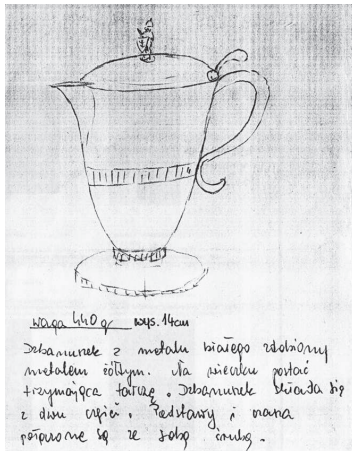 waga 440g wys. 14cm
Dzbanuszek z metalu białego zdobiony
metalem żółtym. Na wieczku postać
trzymająca tarczę. Dzbanuszek składa się
z dwu części. Podstawy i
połączone są ze sobą śrubką.